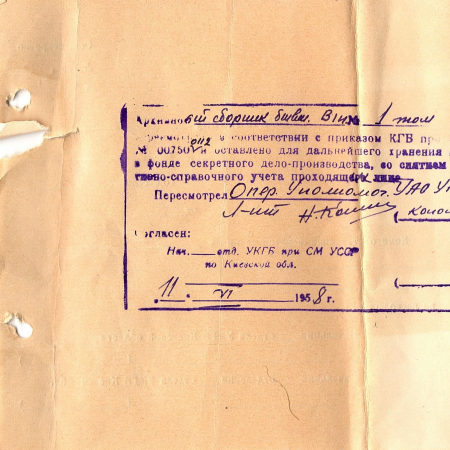 Архивно ый сборник бывш. ВЧК № 1 том
в соответствии с приказом КГБ пр
№ 00750 и оставлено для дальнейшего хранения
в фонде секретного дело-производства, со снятием
тивно-справочного учета проходящих лиц
Пересмотрел Опер. Уполномоч. УАО
Л-нт
Согласен:
Нач. ___ отд. УКГБ при СМ УССР
по Киевской обл.
11 VI 1958 г.